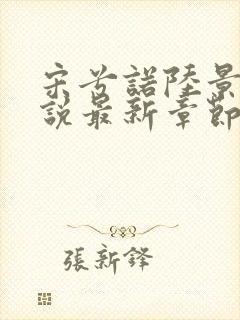 宋兮諾陸景
說最新章節
張新鋒